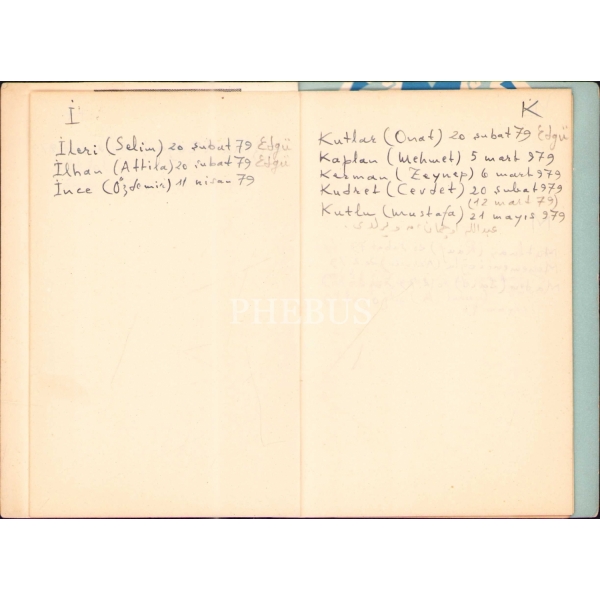 İ
İleri (Selim) 20 şubat 79 Edgü
İlhan (Attila) 20 şubat 79 Edgü
İnce (Özdemir) 11 nisan 79
K
Kutlar (Onat) 20 şubat 79 Edgü
Kaplan (Mehmet) 5 mart 979
Kerman (Zeynep) 6 mart 979
Kudret (Cevdet) 20 şubat 979
(12 mart 79)
Kutlu (Mustafa) 21 mayıs 979
PHEBUS